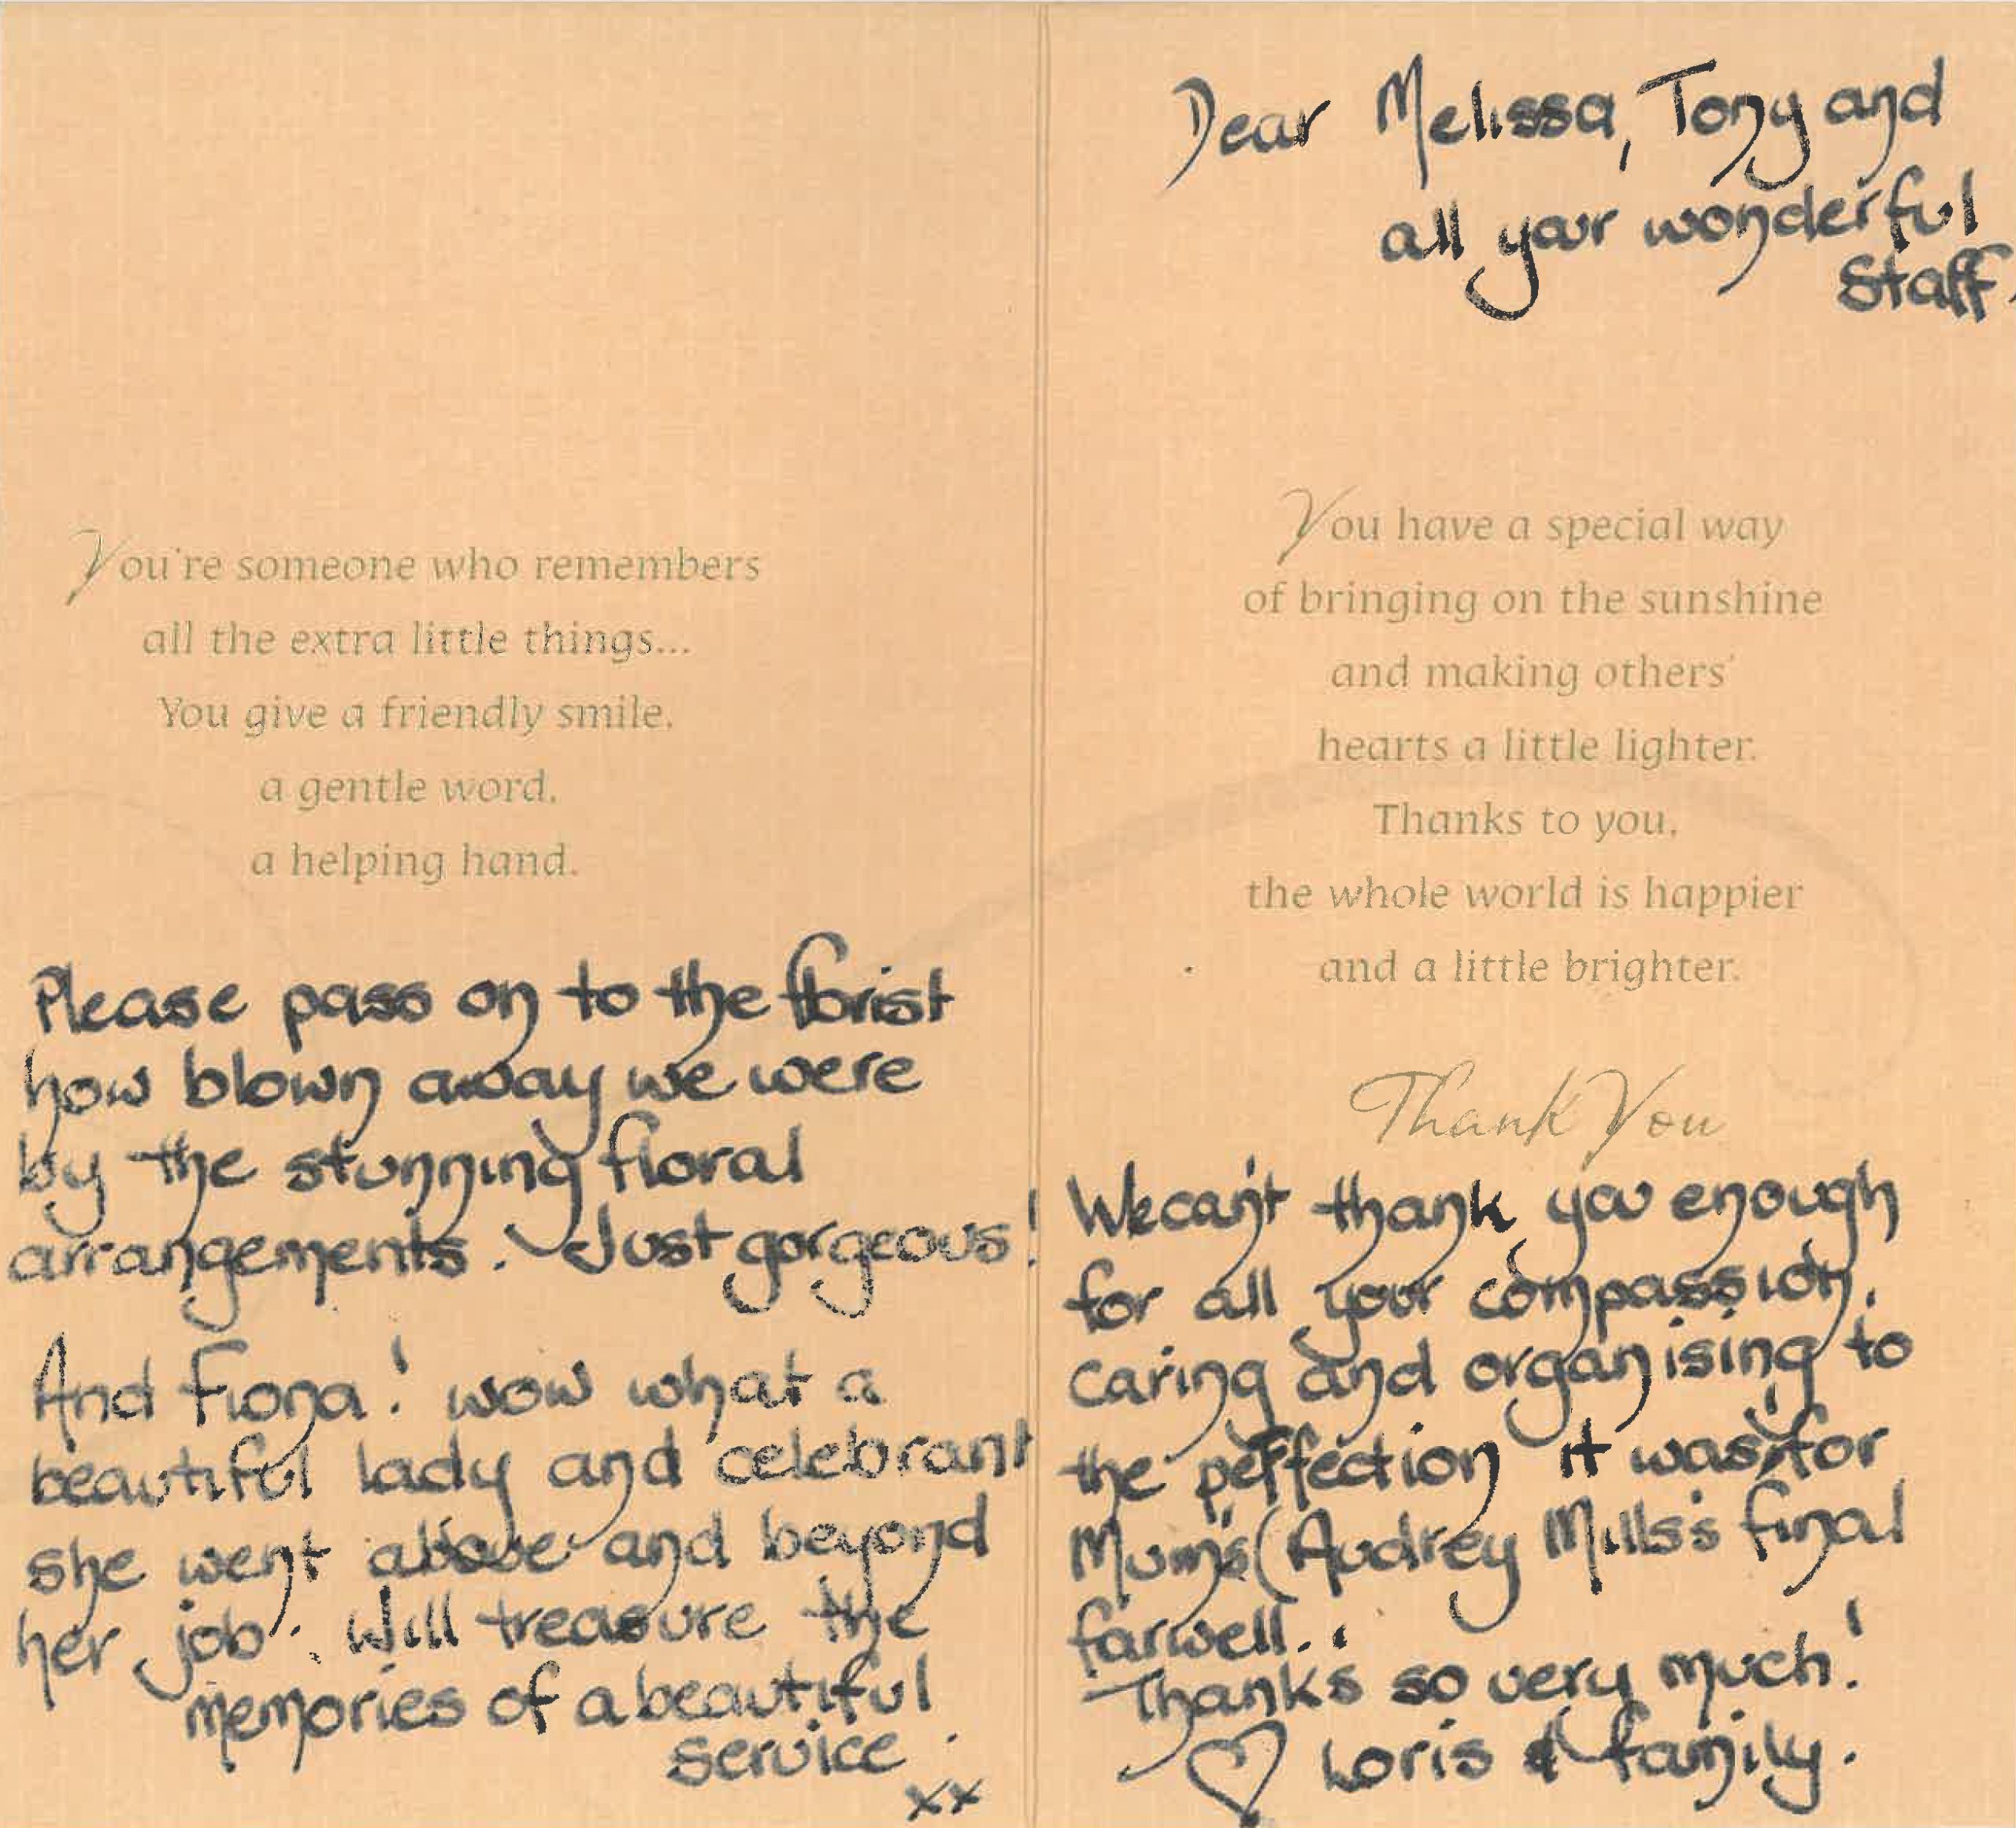 You're someone who remembers
all the extra little things...
You give a friendly smile,
a gentle word,
a helping hand.
Please pass on to the florist
how blown away we were
by the stunning floral
arrangements. Just gorgeous!
And Fiona! wow what a
beautiful lady and celebrant
she went above and beyond
her job. Will treasure the
memories of a beautiful
service.
xx
Dear Melissa, Tony and
all your wonderful
Staff,
You have a special way
of bringing on the sunshine
and making others'
hearts a little lighter.
Thanks to you,
the whole world is happier
and a little brighter.
Thank You
We can't thank you enough
for all your compassion,
caring and organising to
the perfection it was, for
Mum's (Audrey Mills's final
farwell..
Thanks so very much!
♡ Loris & family.